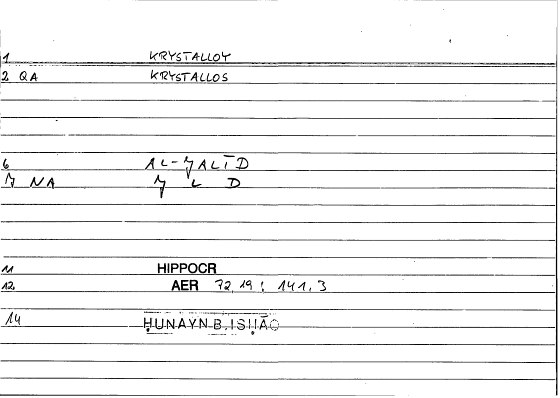 1 KRYSTALLOY
2 QA KRYSTALLOS
6 AL-ǦALĪD
7 NA Ǧ L D
11 HIPPOCR
12 AER 72,19 : 141,3
14 ḤUNAYN B. ISḤĀQ